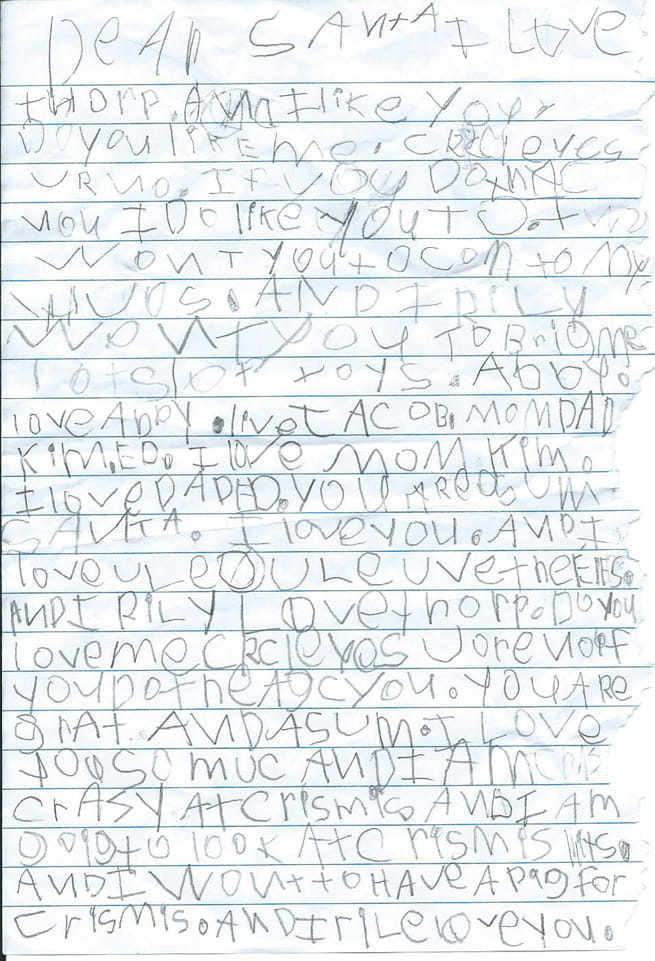 DEAR SANtA I Love
thorp. AND I like You.
Do you like me. CRCle yes
UR NO. If you Do thAC
you I Do like you to. I
Wont you to com to My
HUOS. AND I RILY
Wont you TO Briqme
Lots of toys. Abby.
love Abby. live JACOB. MOM DAD
Kim. ED. I love MOM Kim.
I love DAD ED. YOU ARe asum
SANtA. I love you. AND I
love U Le U Le U ve the Elfs.
AND I RILY Love thorp. Do you
love me CRCle YeS U ore no if
you Do theAgcyou. YOU ARE
grat AND ASUM. I LOVE
you so muc AND I AM
CrASy At Crismis AND I AM
goig to look At Crismis lits.
AND I Wont to HAVe A pag for
Crismis. AND I rile love you.